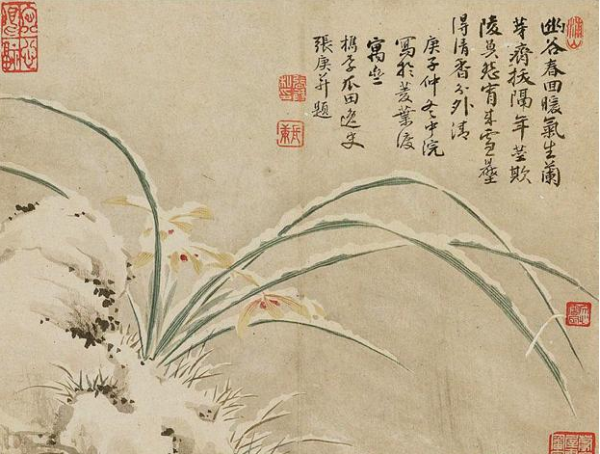 浦山
幽谷春回暖氣生蘭
芽齊拔隔年莖欺
陵莫宵來雪
得清香分外清
庚子仲冬中浣
寫於菱葉渡
寓
檇李瓜田逸史
張庚并題